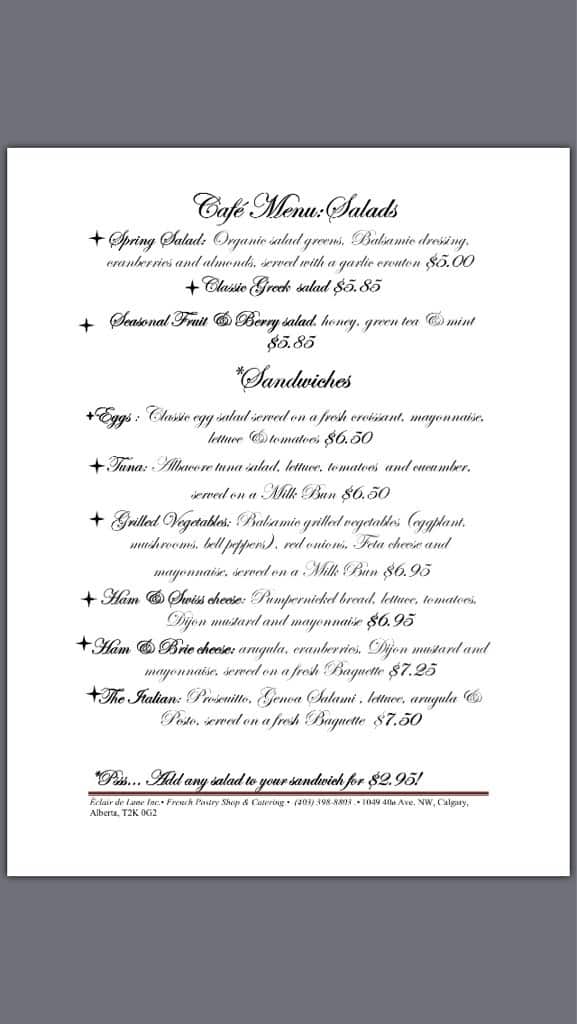 Café Menu: Salads
Spring Salad: Organic salad greens, Balsamic dressing,
cranberries and almonds, served with a garlic crouton $5.00
Classic Greek salad $5.85
Seasonal Fruit & Berry salad, honey, green tea & mint
$5.85
*Sandwiches
Eggs : Classic egg salad served on a fresh croissant, mayonnaise,
lettuce & tomatoes $6.50
Tuna: Albacore tuna salad, lettuce, tomatoes and cucumber,
served on a Milk Bun $6.50
Grilled Vegetables: Balsamic grilled vegetables (eggplant,
mushrooms, bell peppers), red onions, Feta cheese and
mayonnaise, served on a Milk Bun $6.95
Ham & Swiss cheese: Pumpernickel bread, lettuce, tomatoes,
Dijon mustard and mayonnaise $6.95
Ham & Brie cheese: arugula, cranberries, Dijon mustard and
mayonnaise, served on a fresh Baguette $7.25
The Italian: Proscuitto, Genoa Salami , lettuce, arugula &
Pesto, served on a fresh Baguette $7.50
*Psss... Add any salad to your sandwich for $2.95!
Éclair de Lune Inc.• French Pastry Shop & Catering • (403) 398-8803 .• 1049 40a Ave. NW, Calgary,
Alberta, T2K 0G2